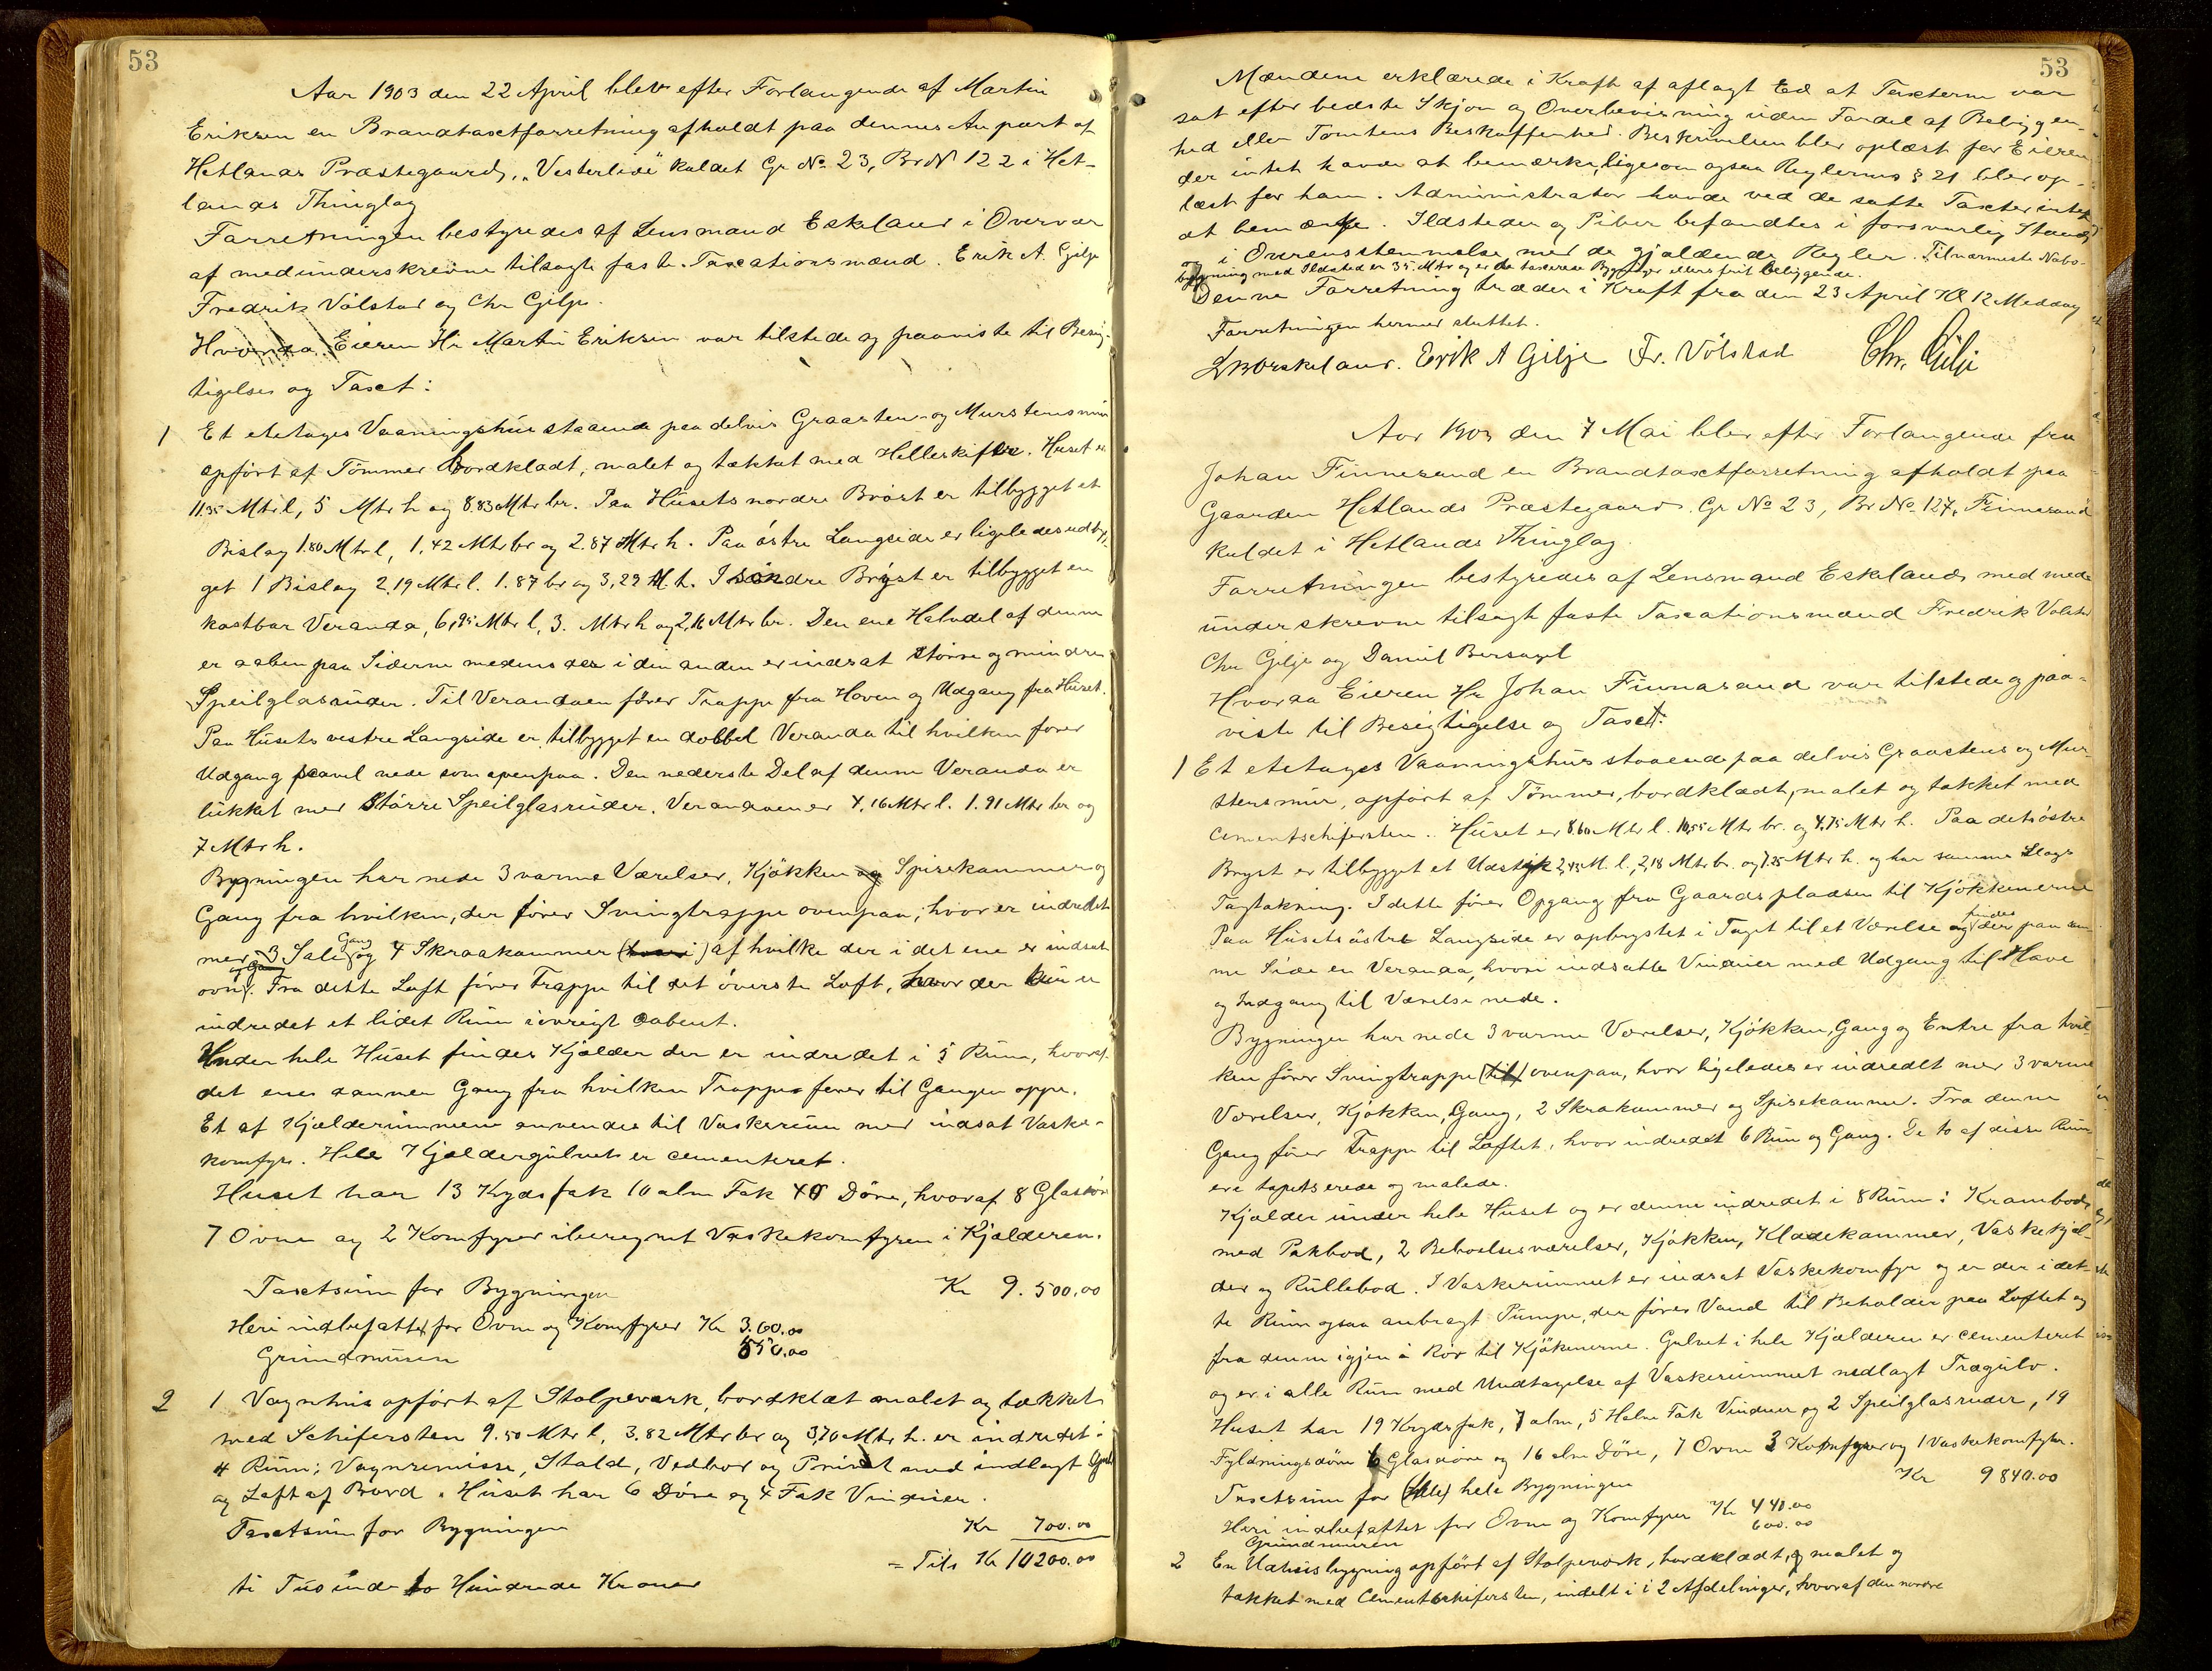 53
Aar 1903 den 22 April blev efter Forlangende af Martin
Eriksen en Brandtaxtforretning afholdt paa dennes Anpart af
Hetlands Præstegaard, „Vesterlide" kaldet Gr No 23, Br N 122 i Het-
lands Thinglag
Forretningen bestyredes af Lensmand Eskeland i Overvær
af medunderskrevne tilsagte faste Taxationsmænd. Erik A. Gilje
Fredrik Vølstad og Chr Gilje.
Hvorda Eieren Hr Martin Eriksen var tilstede og paaviste til Besig-
tigelse og Taxt:
1 Et etetages Vaaningshus staaende paa delvis Graastens- og Murstensmur
opført af Tømmer bordklædt, malet og tækket med Helleskifer. Huset er
11.35 Mtr l, 5 Mtr h og 8.83 Mtr br. Paa Husets nordre Brøst er tilbygget et
Bislag 1.80 Mtr l, 1.42 Mtr br og 2.87 Mtr h. Paa østre Langside er ligeledes udbyg-
get 1 Bislag 2.19 Mtr l. 1.87 br og 3,29 M. h. I søndre Brøst er tilbygget en
kostbar Veranda, 6,95 Mtr l, 3. Mtr h og 2,16 Mtr br. Den ene Halvdel af denne
er aaben paa Siderne medens der i den anden er indsat større og mindre
Speilglasruder. Til Verandaen fører Trappe fra Haven og Udgang fra Huset.
Paa Husets vestre Langside er tilbygget en dobbel Veranda til hvilken fører
Udgang saavel nede som ovenpaa. Den nederste Del af denne Veranda er
lukket med større Speilglasruder. Verandaen er 4,16 Mtr l. 1.91 Mtr br og
7 Mtr h.
Bygningen har nede 3 varme Værelser, Kjøkken og Spisekammer og
Gang fra hvilken, der fører Svingtrappe ovenpaa, hvor er indredet
med 3 Sale Gang og 4 Skraakammer af hvilke der i det ene er indsat
ovn. Fra dette Loft fører Trappe til det øverste Loft, hvor der kun er
indredet et lidet Rum iøvrigt aabent.
Under hele Huset findes Kjælder der er indredet i 5 Rum, hvoraf
det ene danner Gang fra hvilken Trappe fører til Gangen oppe.
Et af Kjælderummene anvendes til Vaskerum med indsat Vaske-
komfyr. Hele Kjældergulvet er cementeret.
Huset har 13 Krydsfak 10 alm Fak 40 Døre, hvoraf 8 Glasdør
7 Ovne og 2 Komfyrer iberegnet Vaskekomfyren i Kjælderen.
Taxtsum for Bygningen Kr 9.500,00
Heri indbefattet for Ovne og Komfyrer Kr 360.00
Grundmuren 550.00
2 1 Vognhus opført af Stolpeværk, bordklæt malet og tækket
med Schifersten 9.50 Mtr l, 3.82 Mtr br og 3,70 Mtr h. er indredet i
4 Rum; Vognremisse, Stald, Vedbod og Privet med indlagt Gulv
og Loft af Bord. Huset har 6 Døre og 4 Fak Vinduer.
Taxtsum for Bygningen Kr 700.00
= Tils Kr 10200.00
ti Tusinde to Hundrede Kroner
53
Mændene erklærede i Kraft af aflagt Ed at Taxterne var
sat efter bedste Skjøn og Overbevisning uden Fordel af Beliggen-
hed eller Tomtens Beskaffenhed. Beskrivelsen blev oplæst for Eieren
der intet havde at bemærke, ligesom ogsaa Reglernes § 21 blev op-
læst for ham. Administrator havde ved de satte Taxter intet
at bemærke. Ildsteder og Piber befandtes i forsvarlig Stand
og i Overensstemmelse med de gjældende Regler. Til nærmeste Nabo-
bygning med Ildsted er 35 Mtr og er de taxerede Bygninger ellers frit beliggende.
Denne Forretning træder i Kraft fra den 23 April Kl 12 Middag
Forretningen hermed sluttet.
Erik A Gilje Fr. Vølstad Chr. Gilje
Aar 1903 den 7 Mai blev efter Forlangende fra
Johan Finnesand en Brandtaxtforretning afholdt paa
Gaarden Hetlands Præstegaard. Gr No 23, Br No 127, Finnesand
kaldet i Hetlands Thinglag.
Forretningen bestyredes af Lensmand Eskeland med med-
underskrevne tilsagte faste Taxationsmænd Fredrik Vølstad
Chr Gilje og Daniel Bersagel
Hvorda Eieren Hr Johan Finnesand var tilstede og paa-
viste til Besigtigelse og Taxt:
1 Et etetages Vaaningshus staaende paa delvis Graastens og Mur-
stensmur, opført af Tømmer, bordklædt, malet og tækket med
Cementschifersten. Huset er 8.60 Mtr l. 10,55 Mtr br. og 4,75 Mtr h. Paa det østre
Brøst er tilbygget et Udstik 2,43 M. l, 2,18 Mtr br. og 7.25 Mtr h. og har samme Slags
Tagtækning. I dette fører Opgang fra Gaardspladsen til Kjøkkenerne
Paa Husets østre Langside er opbrystet i Taget til et Værelse og findes der paa sam-
me Side en Veranda, hvori indsatte Vinduer med Udgang til Have
og Indgang til Værelse nede.
Bygningen har nede 3 varme Værelser, Kjøkken, Gang og Entre fra hvil-
ken fører Svingtrappe (til) ovenpaa, hvor ligeledes er indredet med 3 varme
Værelser, Kjøkken, Gang, 2 Skrakammer og Spisekammer. Fra denne
Gang fører Trappe til Loftet, hvor indredet 6 Rum og Gang. De to af disse Rum
ere tapetserede og malede.
Kjælder under hele Huset og er denne indredet i 8 Rum: Krambod
med Pakbod, 2 Beboelsesværelser, Kjøkken, Klædekammer, Vaskekjæl-
der og Rullebod. I Vaskerummet er indsat Vaskekomfyr og er der i det-
te Rum ogsaa anbragt Pumpe, der fører Vand til Beholder paa Loftet og
fra denne igjen i Rør til Kjøkenerne. Gulvet i hele Kjælderen er cementeret
og er i alle Rum med Undtagelse af Vaskerummet nedlagt Trægulv.
Huset har 19 Krydsfak, 7 alm, 5 Halve Fak Vinduer og 2 Speilglasruder, 19
Fyldningsdøre 6 Glasdøre og 16 alm Døre, 7 Ovne 3 Komfyrer og 1 Vaskekomfyr.
Taxtsum for hele Bygningen Kr 9840.00
Heri indbefattet for Ovne og Komfyrer Kr 440.00
Grundmuren 600.00
2 En Udhusbygning opført af Stolpeværk, bordklædt, malet og
tækket med Cementskifersten, indelt i i 2 Afdelinger, hvoraf den nordre